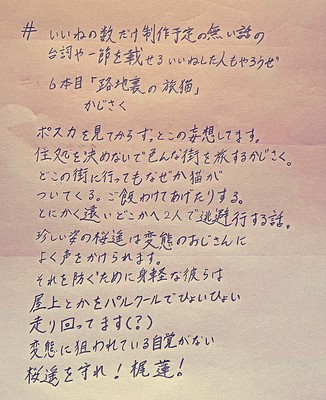 # いいねの数だけ制作予定の無い話の
台詞や一節を載せる いいねした人もやろうぜ
6本目「路地裏の旅猫」
かじさく
ポスカを見てからずっとこの妄想してます。
住処を決めないで色んな街を旅するかじさく。
どこの街に行ってもなぜか猫が
ついてくる。ご飯わけてあげたりする。
とにかく遠いどこかへ2人で逃避行する話。
珍しい姿の桜遥は変態のおじさんに
よく声をかけられます。
それを防ぐために身軽な彼らは
屋上とかをパルクールでひょいひょい
走り回ってます(?)
変態に狙われている自覚がない
桜遥を守れ!梶蓮!